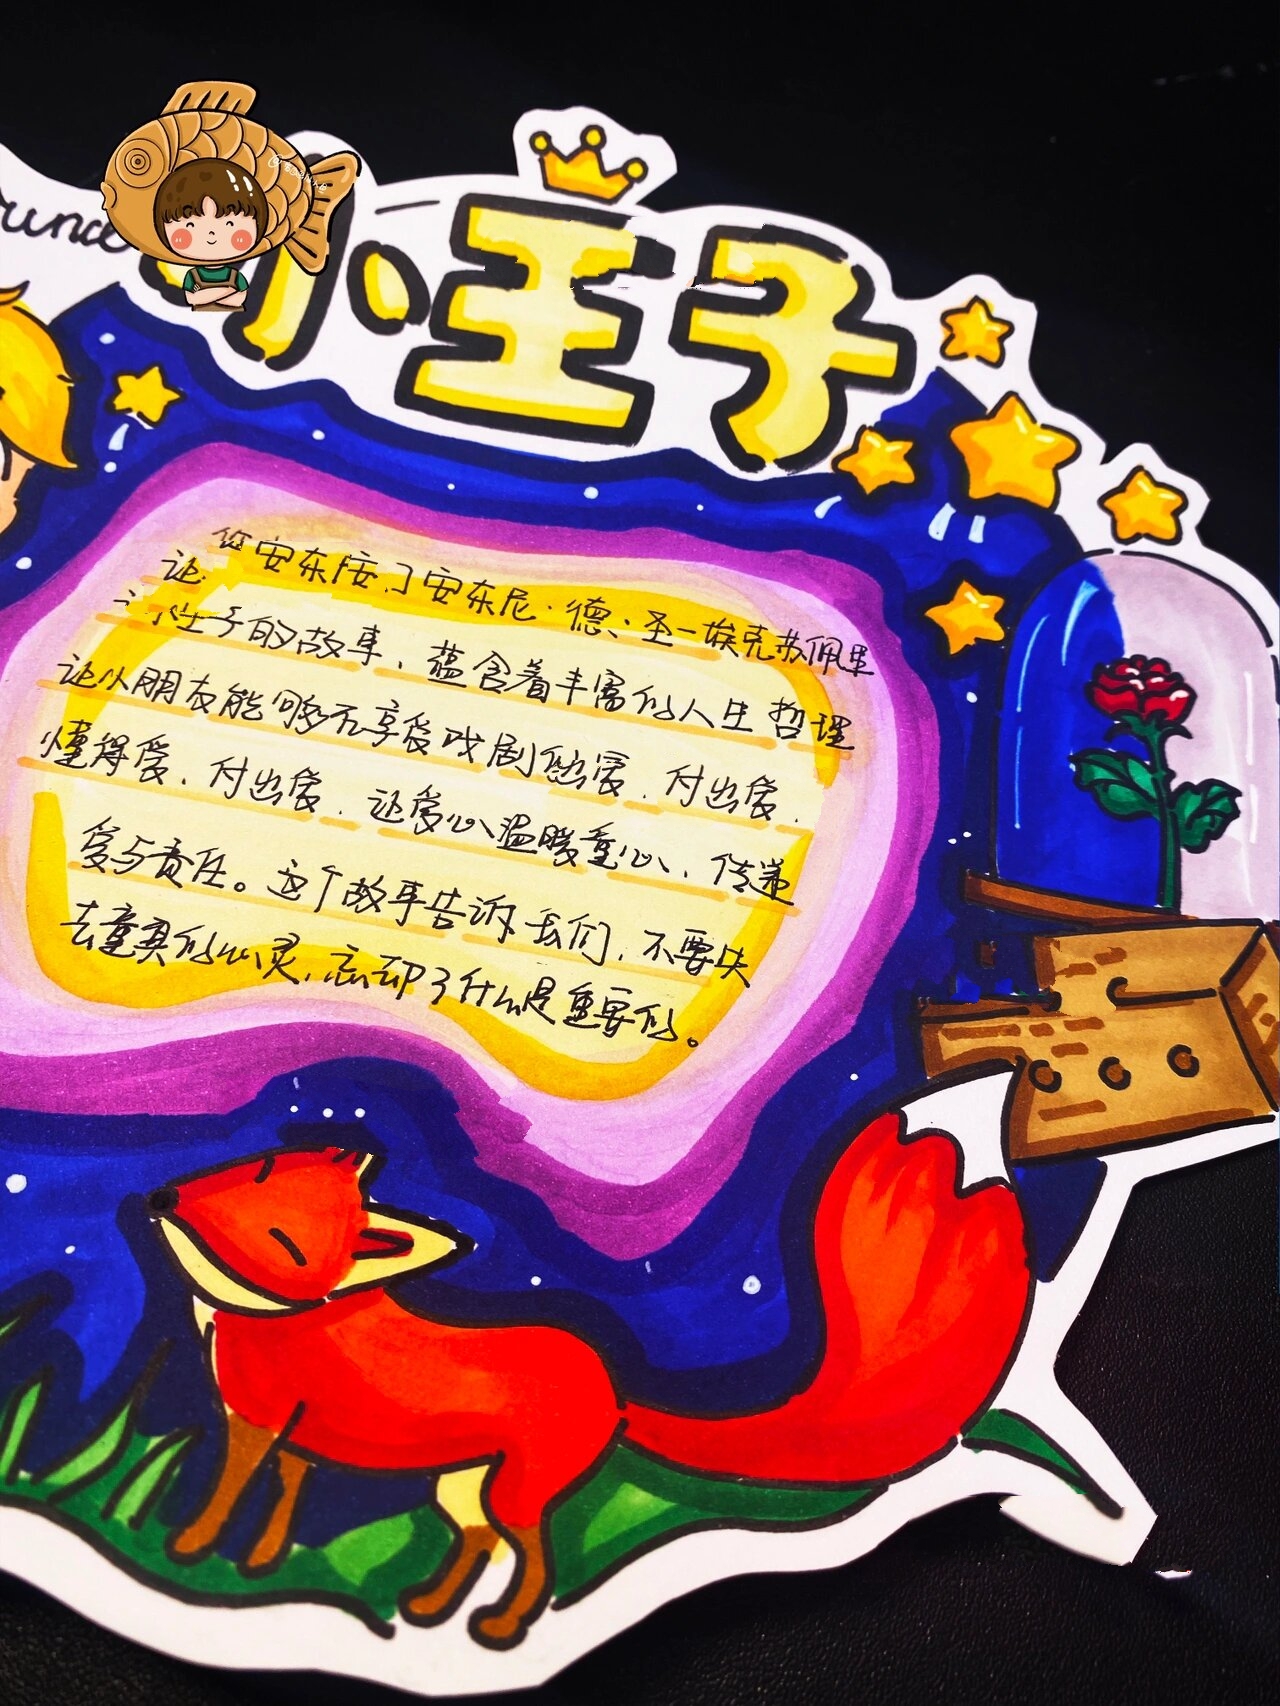 小王子
让 安东 了安东尼·德·圣一埃克苏佩里
王子的故事、蕴含着丰富的人生哲理
让小朋友能够不享受戏剧 ，付出爱，
懂得爱、付出爱、让爱心温暖童心、传递
爱与责任。这个故事告诉我们，不要失
去童真的心灵，忘却了什么是重要的。